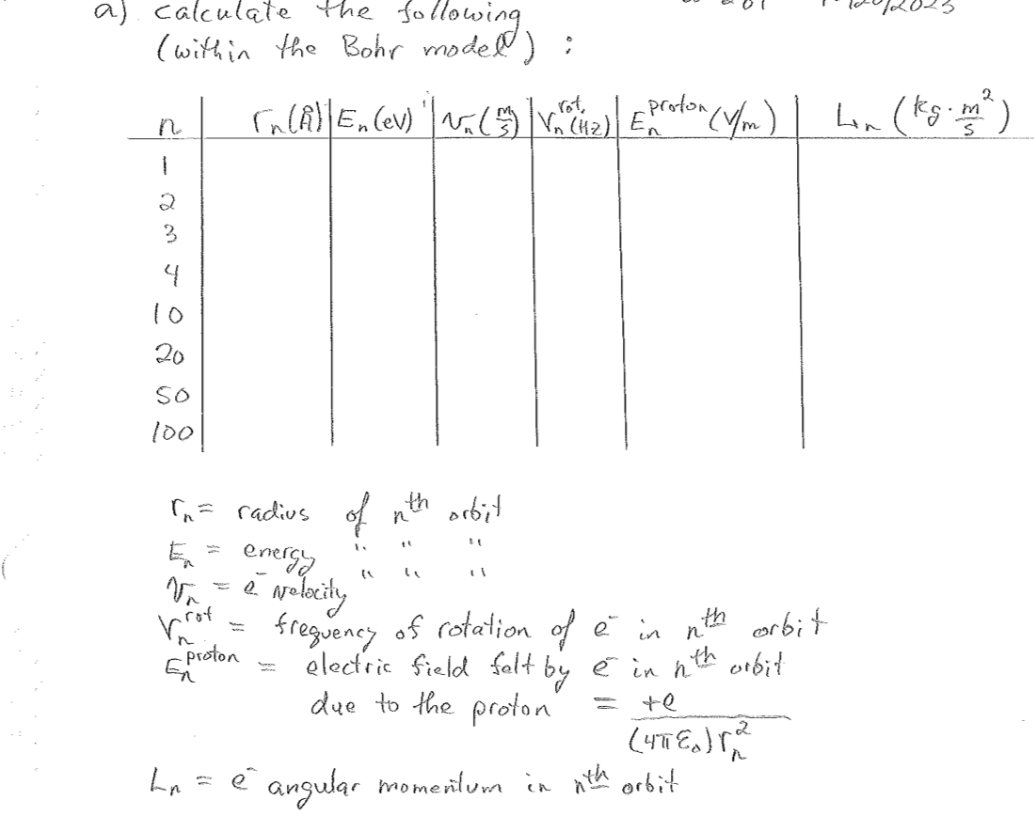 a) calculate the following
(within the Bohr model) :
n rₙ(Å) Eₙ(eV) vₙ(m/s) νₙʳᵒᵗ·(Hz) Eₙᵖʳᵒᵗᵒⁿ(V/m) Lₙ (kg·m²/s)
1
2
3
4
10
20
50
100
rₙ = radius of nᵗʰ orbit
Eₙ = energy " " "
vₙ = e⁻ velocity " " "
νₙʳᵒᵗ = frequency of rotation of e⁻ in nᵗʰ orbit
Eₙᵖʳᵒᵗᵒⁿ = electric field felt by e⁻ in nᵗʰ orbit
due to the proton = +e/(4πε₀)rₙ²
Lₙ = e⁻ angular momentum in nᵗʰ orbit